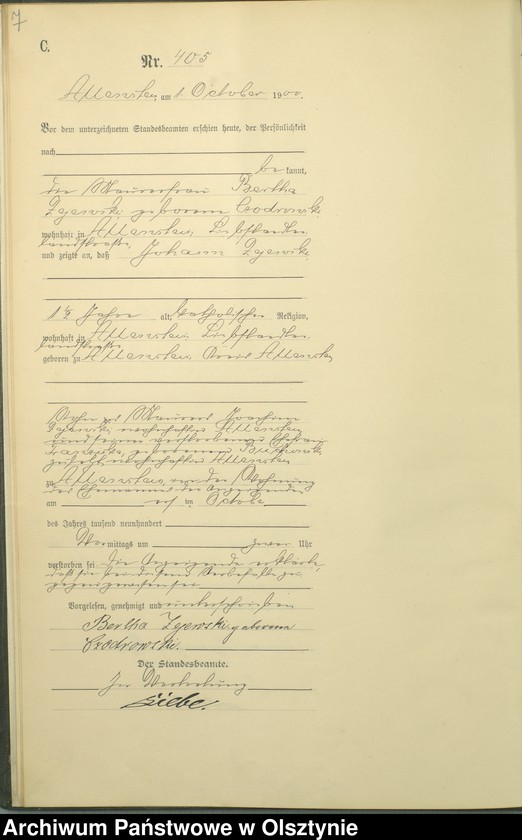 7
C.
Nr. 405
Allenstein am 1 October 1900.
Vor dem unterzeichneten Standesbeamten erschien heute, der Persönlichkeit
nach
be kannt,
die Maurerfrau Bertha
geborene
wohnhaft in Allenstein, Liebstaedter
landstraße
und zeigte an, daß Johann
1½ Jahre alt, katholischer Religion,
wohnhaft in Allenstein Liebstaedter
landstraße
geboren zu Allenstein Kreis Allenstein
Sohn des Maurers Joachim
wohnhaft in Allenstein
und seiner verstorbenen Ehefrau
geborenen
zuletzt wohnhaft in Allenstein
zu Allenstein, in der Wohnung
des Ehemannes der Anzeigenden
am im Octobe
des Jahres tausend neunhundert
Vor mittags um zwei Uhr
verstorben sei. Die Anzeigende erklärte,
daß sie bei diesem Sterbefalle zu
gegen gewesen sei
Vorgelesen, genehmigt und unterschrieben
Bertha geborene
Der Standesbeamte.
In Vertretung
Archiwum Państwowe w Olsztynie